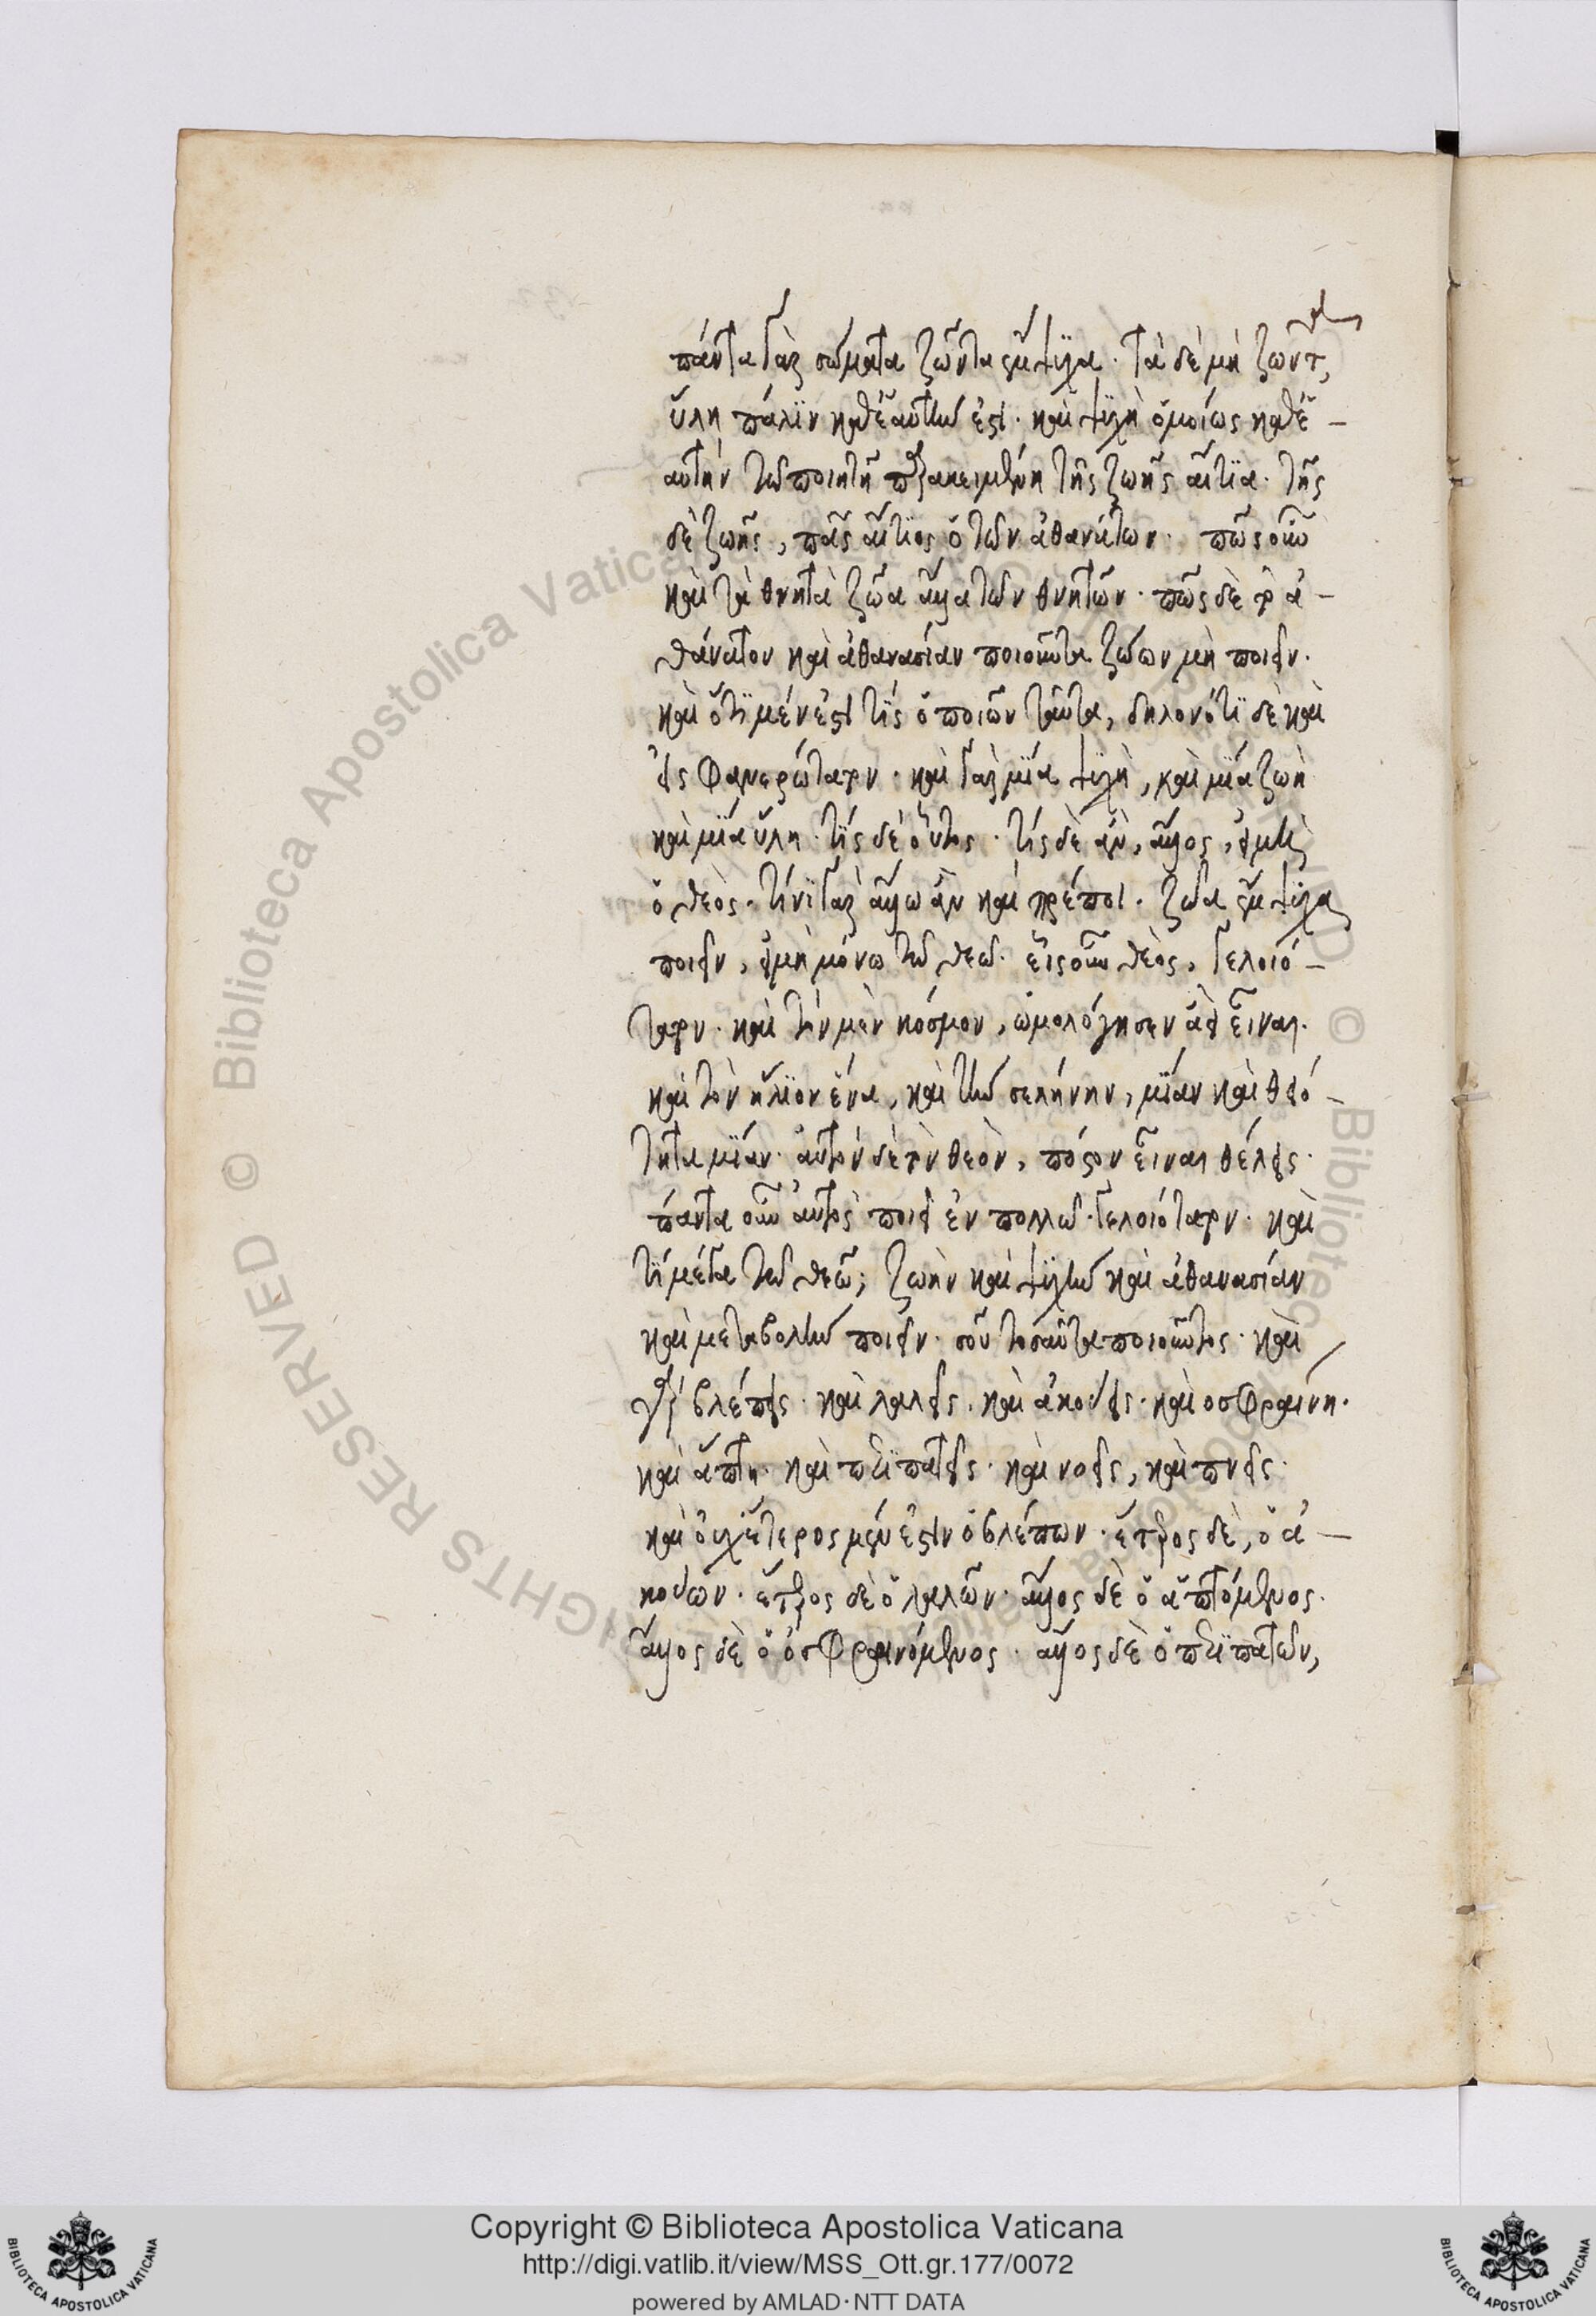 πάντα γὰρ σώματα ζῶντα ἔμψυχα· τὰ δὲ μὴ ζῶντα,
ὕλη πάλϊν καθ' ἑαυτήν ἐστι· καὶ ψυχὴ ὁμοίως καθ' ἑ-
αυτὴν τῶ ποιητῆ παρακειμένη τῆς ζωῆς αἰτία· τῆς
δὲ ζωῆς, πᾶς αἴτϊος ὁ τῶν ἀθανάτων· πῶς οὖν
καὶ τὰ θνητὰ ζῶα ἄλλα τῶν θνητῶν· πῶς δὲ τὸ ἀ-
θάνατον καὶ ἀθανασίαν ποιοῦντα ζώων μὴ ποιεῖν·
καὶ ὅτϊ μέν ἐστί τϊς ὁ ποιῶν ταῦτα, δηλονότϊ δὲ καὶ
εἷς φανερώτατον· καὶ γὰρ μία ψυχὴ, καὶ μϊά ζωὴ
καὶ μϊά ὕλη· τϊς δὲ οὗτος· τίς δὲ ἂν, ἄλλος, εἰ μὴ
ὁ θεὸς· τίνϊ γὰρ ἄλλω ἂν καὶ πρέποι· ζῶα ἔμψυχα
ποιεῖν, εἰ μὴ μόνω τῶ θεῶ· εἷς οὖν θεὸς, γελοιό-
τατον· καὶ τὸν μὲν κόσμον, ὡμολόγησεν ἀεὶ εἶναι·
καὶ τὸν ἥλϊον ἕνα, καὶ τὴν σελήνην, μϊάν καὶ θειό-
τητα μϊάν· αὐτὸν δὲ τὸν θεὸν, πόστον εἶναι θέλεις·
πάντα οὖν αὐτὸς ποιεῖ ἐν πολλῶ· γελοιότατον· καὶ
τϊ μέγα τῶ θεῶ; ζωὴν καὶ ψυχὴν καὶ ἀθανασίαν
καὶ μεταβολὴν ποιεῖν· σοῦ τοσαῦτα ποιοῦντος· καὶ
γὰρ βλέπεις· καὶ λαλεῖς· καὶ ἀκούεις· καὶ οσφραίνη·
καὶ ἅπτη· καὶ περϊπατεῖς· καὶ νοεῖς, καὶ πνεῖς·
καὶ οὐχ ἕτερος μέν ἐστιν ὁ βλέπων· ἕτερος δὲ, ὁ ἀ-
κούων· ἕτερος δὲ ὁ λαλῶν· ἄλλος δὲ ὁ ἁπτόμενος·
ἄλλος δὲ ὁ ὀσφραινόμενος· ἄλλος δὲ ὁ περϊπατῶν,
Copyright © Biblioteca Apostolica Vaticana
http://digi.vatlib.it/view/MSS_Ott.gr.177/0072
powered by AMLAD·NTT DATA
BIBLIOTECA APOSTOLICA VATICANA
BIBLIOTECA APOSTOLICA VATICANA